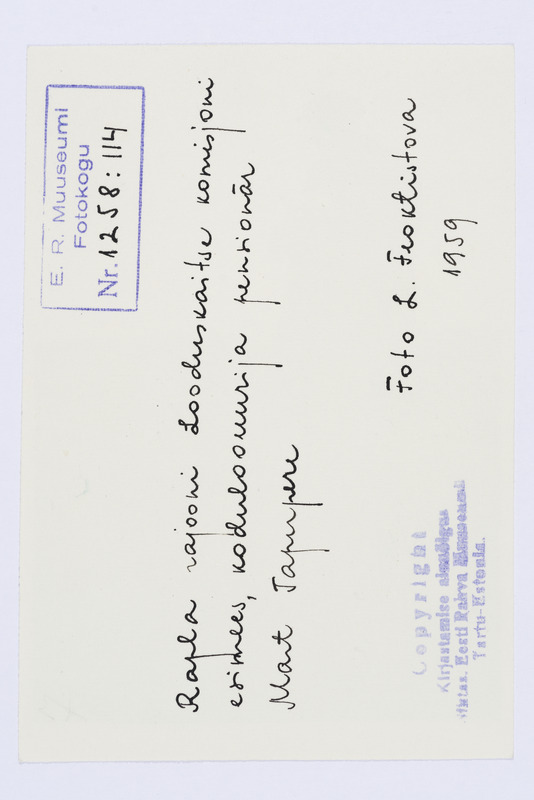 E. R. Muuseumi
Fotokogu
Nr. 1258:114
Rapla rajooni looduskaitse komisjoni
esimees, koduloouurija pensionär
Mart Tapupere
Foto L. Feoktistova
1959
Copyright
Kirjastamise ainuõigus
Eesti Rahva Muuseumi
Tartu-Estonia.